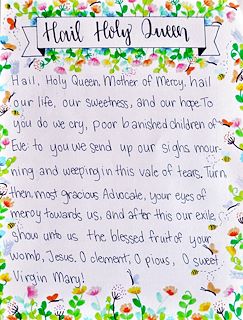 Hail Holy Queen
Hail, Holy Queen, Mother of Mercy, hail
our life, our sweetness, and our hope. To
you do we cry, poor banished children of
Eve to you we send up our sighs mour-
ning and weeping in this vale of tears. Turn
then, most gracious Advocate, your eyes of
mercy towards us, and after this our exile,
show unto us the blessed fruit of your
womb, Jesus. O clement, O pious, O sweet
Virgin Mary!